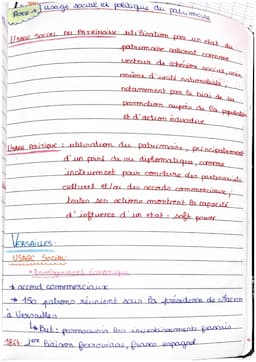 Axe 1 usage social et politique du patrimoine
USAGE SOCIAL DU PATRIMOINE: utilisation par un état du
patrimoine national comme
vecteur de cohésion social, voire
même d'unité nationaliste,
notamment par le biais de sa
promotion auprès de la population
et d'action éducative
USAGE POLITIQUE: utilisation du patrimoine, principalement
d'un point de vu diplomatique, comme
instrument pour conclure des partenariats
culturel et/ou des accords commerciaux,
toutes ses actions montrent la capacité
d'influence d'un état: soft power
VERSAILLES:
USAGE SOCIAL
développement économique
accord commerciaux
150 patrons réunient sous la présidence de Macron
à Versailles
But: promouvoir les investissements français
1864: 1ère liaison ferroviaire, franco espagnol